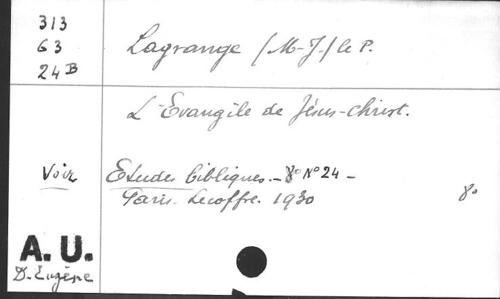 313
63
24B
Lagrange (M-J-) le P.
L'Evangile de Jésus-Christ.
Voir Etudes bibliques. - 8° N° 24 -
Paris. Lecoffre. 1930 8°
A. U.
D. Eugène